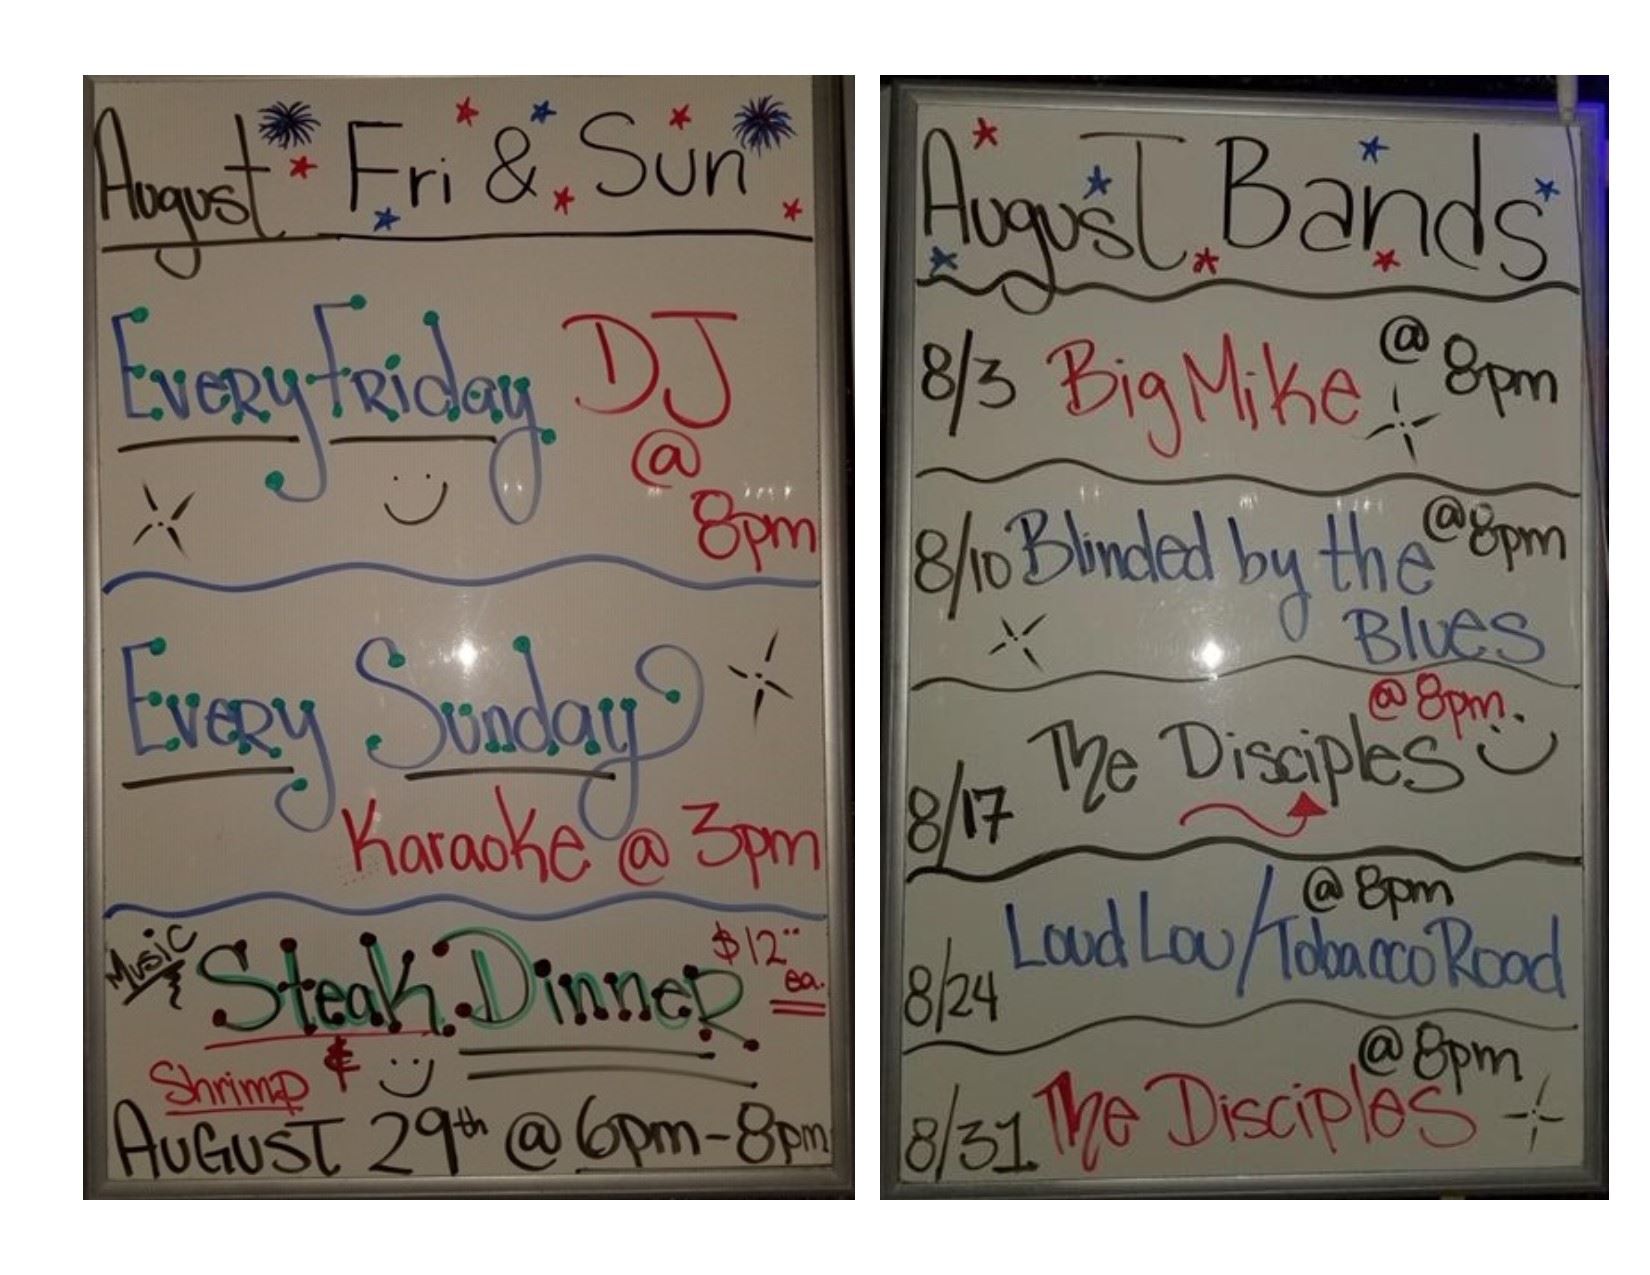 August Fri & Sun
Every Friday DJ
@
8pm
Every Sunday
Karaoke @ 3pm
Music
Steak Dinner $12°° ea.
Shrimp &
August 29th @ 6pm-8pm
August Bands
8/3 Big Mike @ 8pm
8/10 Blinded by the @8pm
Blues
@ 8pm
8/17 The Disciples
@ 8pm
8/24 Loud Lou/Tobacco Road
@ 8pm
8/31 The Disciples